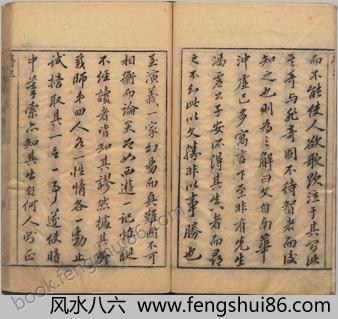 而不能使人欲歌欲泣于其間此
其奇與非奇固不待智者而後
知之也則為之解曰文自南華
沖虛已多寓言下至非有先生
馮虛公子安所得其真者而尋
之不知此以文勝非以事勝也
至演義一家幻易而真難固不可
相衡而論矣即如西遊一記怪誕
不經讀者皆知其謬然據其所
載師弟四人各一性情各一動止
試摘取其一言一事遂使暗
中摹索亦知其出自何人則正
风水八六 www.fengshui86.com